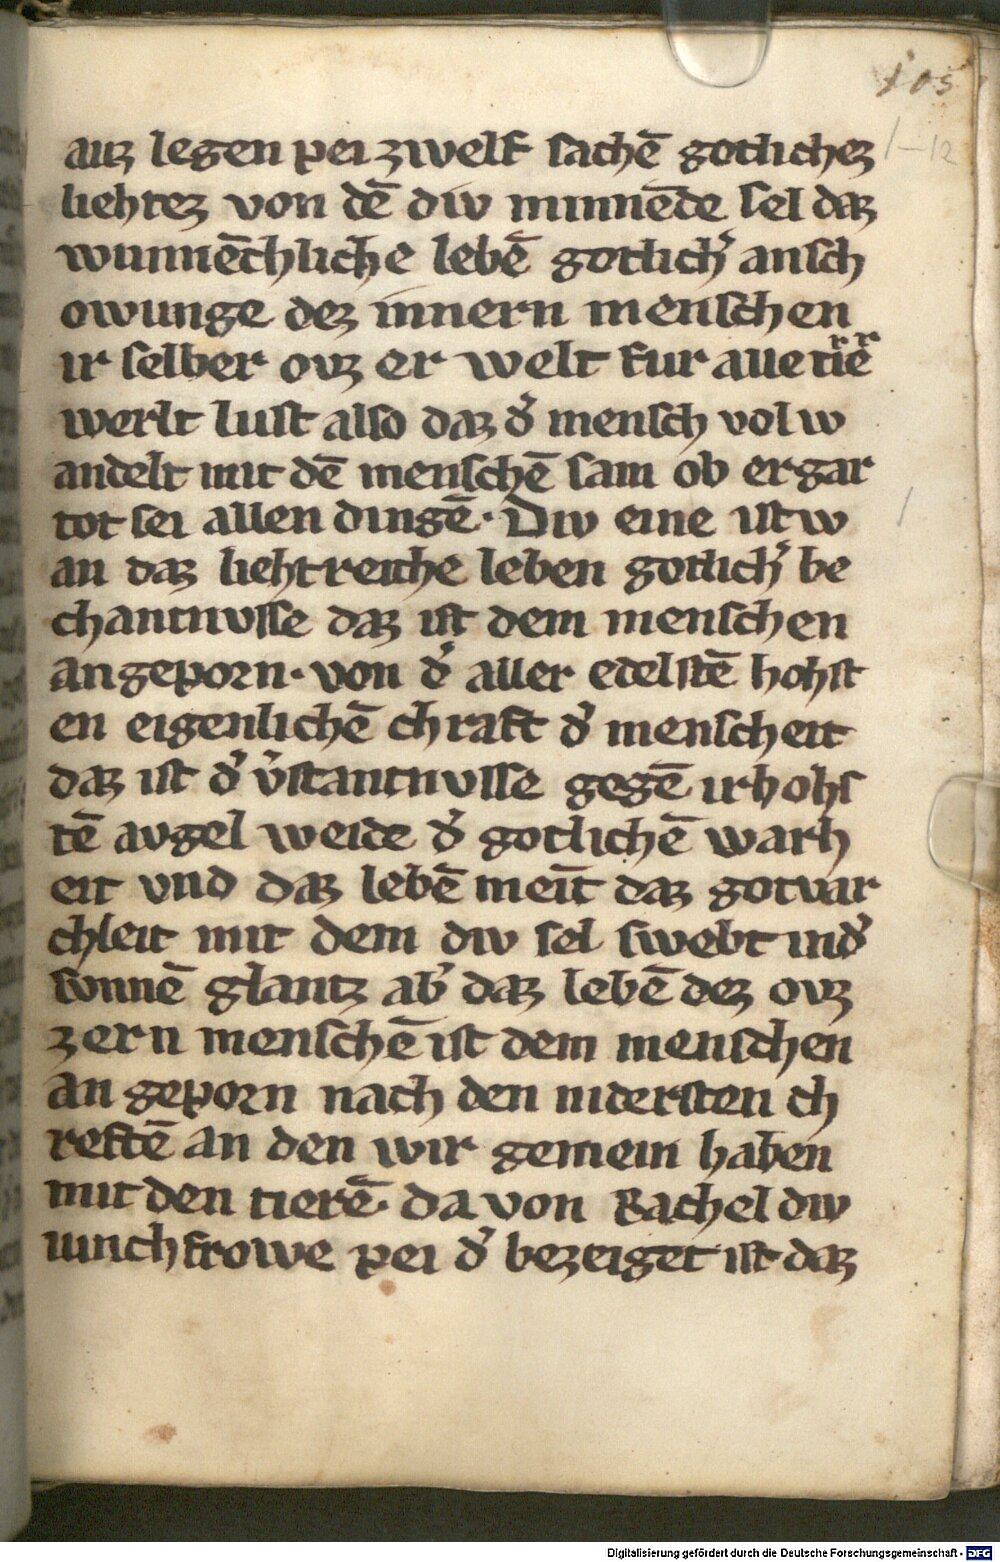 105
auz legen pei zwelf sachē gotlichez
1–12
liehtez von dē div minnēde sel daz
wunnēchliche lebē gotlich͛ ansch
owunge dez innern menschen
ir selber ovz er welt fur alle
werlt lust also daz d͛ mensch vol w
andelt mit dē menschē sam ob er gar
tot sei allen dingē· Div eine ist w
an daz liehtreiche leben gotlich͛ be
chantnvsse daz ist dem menschen
angeporn· von d͛ aller edelstē hohst
en eigenlichē chraft d͛ menscheit
daz ist d͛ v͛stantnvsse gegē ir hohs
tē avgel weide d͛ gotlichē warh
eit vnd daz lebē meīt daz gotvar
chleit mit dem div sel swebt in d͛
sonnē glantz ab͛ daz lebē dez ovz
zern menschē ist dem menschen
an geporn nach den nidersten ch
reftē an den wir gemein haben
mit den tierē· da von Rachel div
iunchfrowe pei d͛ bezeiget ist daz
Digitalisierung gefördert durch die Deutsche Forschungsgemeinschaft - DFG